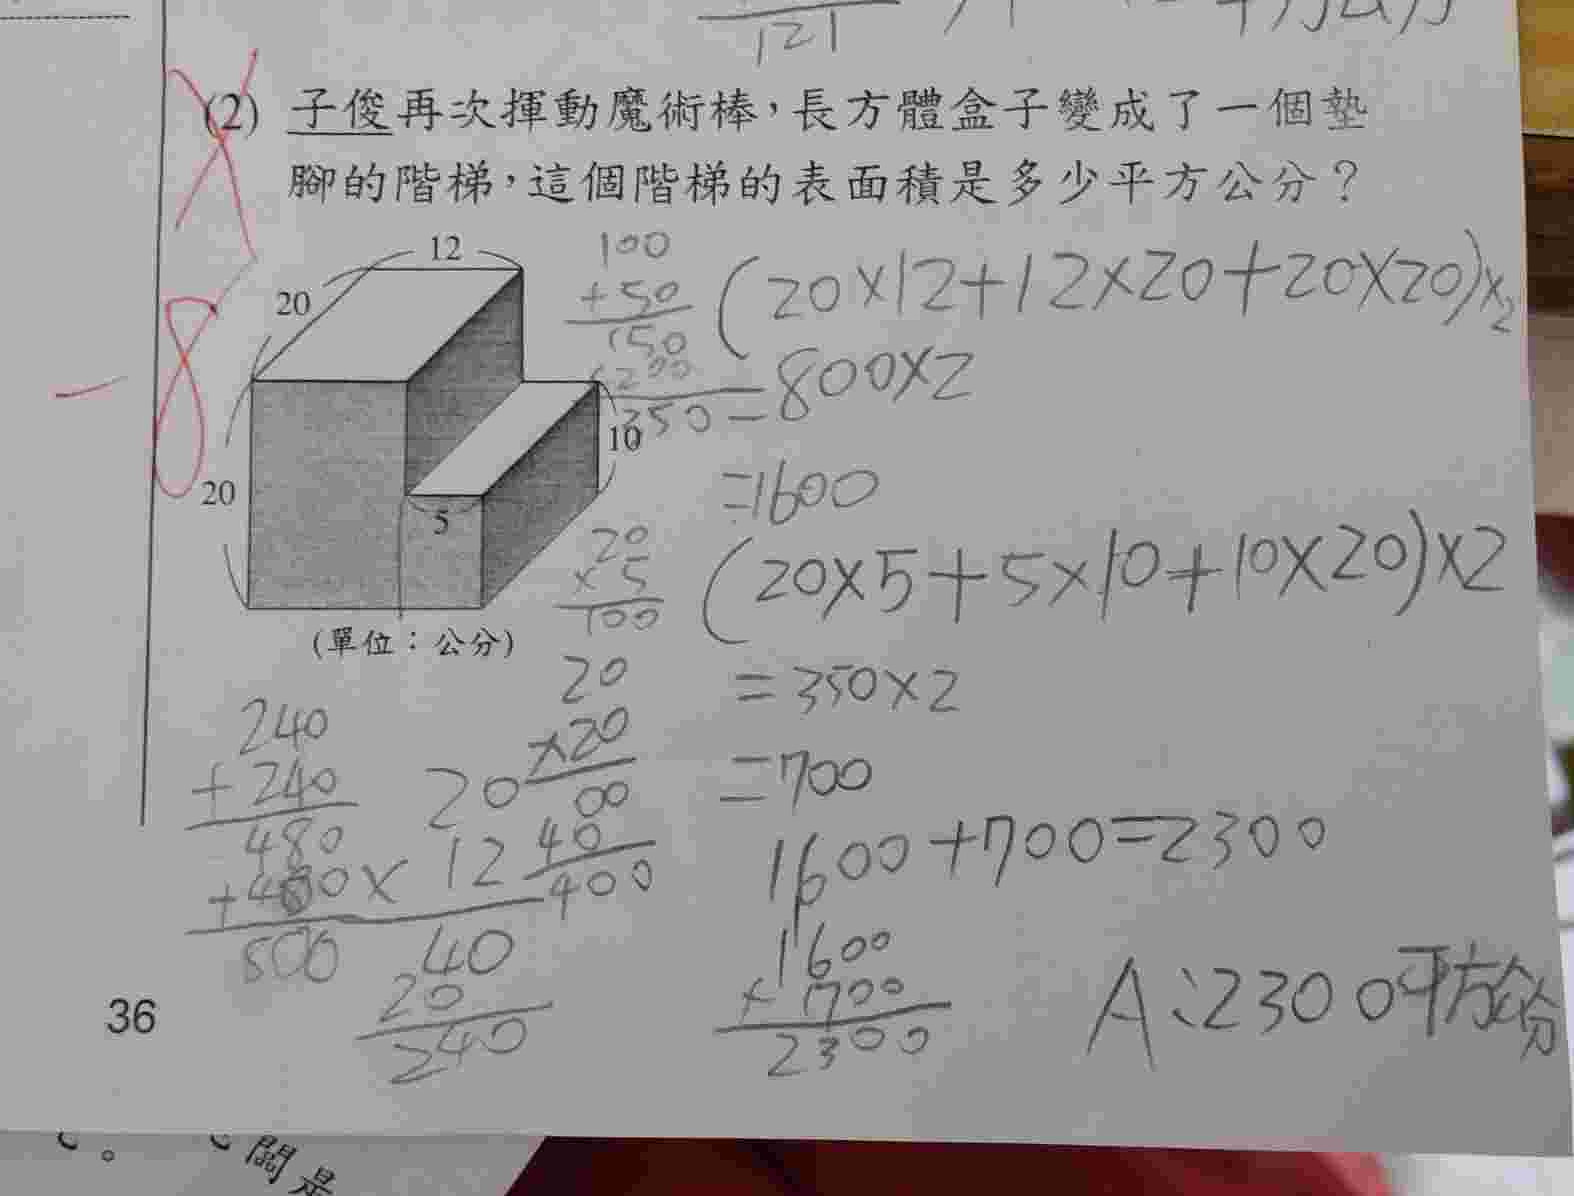 121
(2) 子俊再次揮動魔術棒，長方體盒子變成了一個墊
腳的階梯，這個階梯的表面積是多少平方公分？
-8
12
20
20
10
5
(單位：公分)
100
+50
150
200
350
(20×12+12×20+20×20)×2
=800×2
=1600
20
×5
100
(20×5+5×10+10×20)×2
=350×2
=700
1600+700=2300
20
×20
00
40
400
240
+240
480
+400
800
20
×12
40
20
240
1600
+700
2300
A:2300平方公分
36
關是